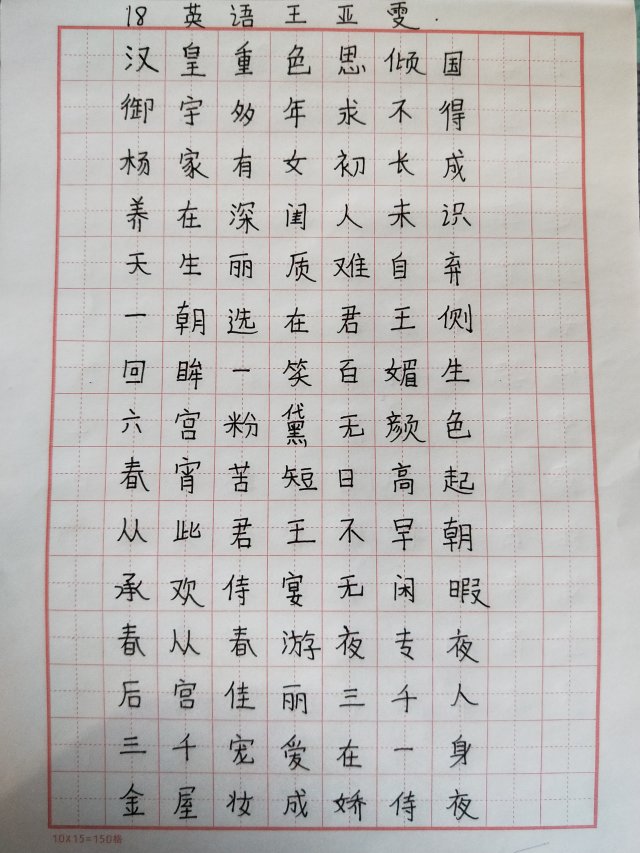 18 英语王亚雯.
汉皇重色思倾国
御宇多年求不得
杨家有女初长成
养在深闺人未识
天生丽质难自弃
一朝选在君王侧
回眸一笑百媚生
六宫粉黛无颜色
春宵苦短日高起
从此君王不早朝
承欢侍宴无闲暇
春从春游夜专夜
后宫佳丽三千人
三千宠爱在一身
金屋妆成娇侍夜
10X15=150格